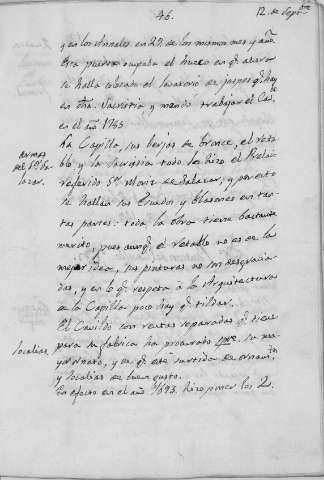 46.
12. de Sepre
y en los Annales en 29. de los mismos mes y año.
Esta puerta ocupaba el hueco en q.e ahora
se halla colocado el lavatorio de jaspes q.e hay
en dha. Sacristia, y mandó trabajar el Cav.do
en el año 1755
Armas
del Sr. Sa-
lazar.
La Capilla, sus berjas de bronce, el reta-
blo y la Sacristia todo lo hizo el Prelado
referido Sr. Moriz de Salazar, y por esto
se hallan sus Escudos y blasones en tan-
tas partes: toda la obra tiene bastante
merito, pues aunq.e el retablo no es de la
mejor idea, sus pinturas no son desgracia-
das, y en lo q.e respeta à la Arquitectura
de la Capilla poco hay q.e tildar.
localias.
El Cavildo con rentas separadas q.e tiene
para su fabrica ha procurado pre. su ma-
yor ornato, y en q.e esté surtida de ornam.tos
y localias de buen gusto.
En efecto en el año 1693. hizo poner los 2.